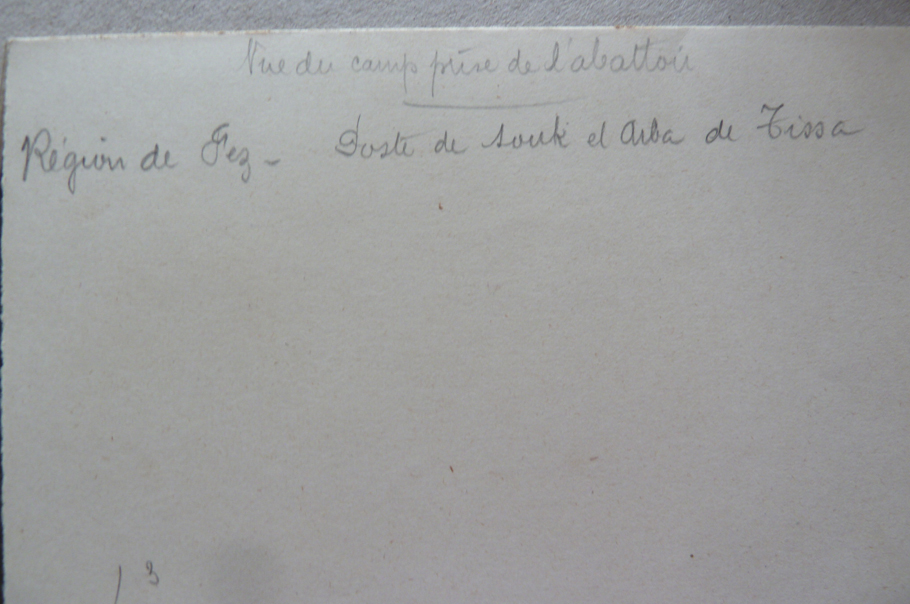 Vue du camp prise de l'abattoir
Région de Fez - Poste de Souk el Arba de Tissa
13